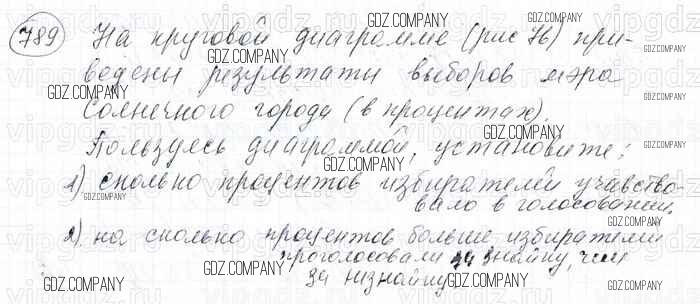 789 На круговой диаграмме (рис 76) при-
ведены результаты выборов мэра
Солнечного города (в процентах).
Пользуясь диаграммой, установите:
1) сколько процентов избирателей учавство-
вало в голосовании,
2) на сколько процентов больше избирателей
проголосовали за Знайку, чем
за Незнайку
GDZ.COMPANY
GDZ.COMPANY
GDZ.COMPANY
GDZ.COMPANY
GDZ.COMPANY
GDZ.COMPANY
GDZ.COMPANY
GDZ.COMPANY
GDZ.COMPANY
GDZ.COMPANY
GDZ.COMPANY
GDZ.COMPANY
GDZ.COMPANY
GDZ.COMPANY